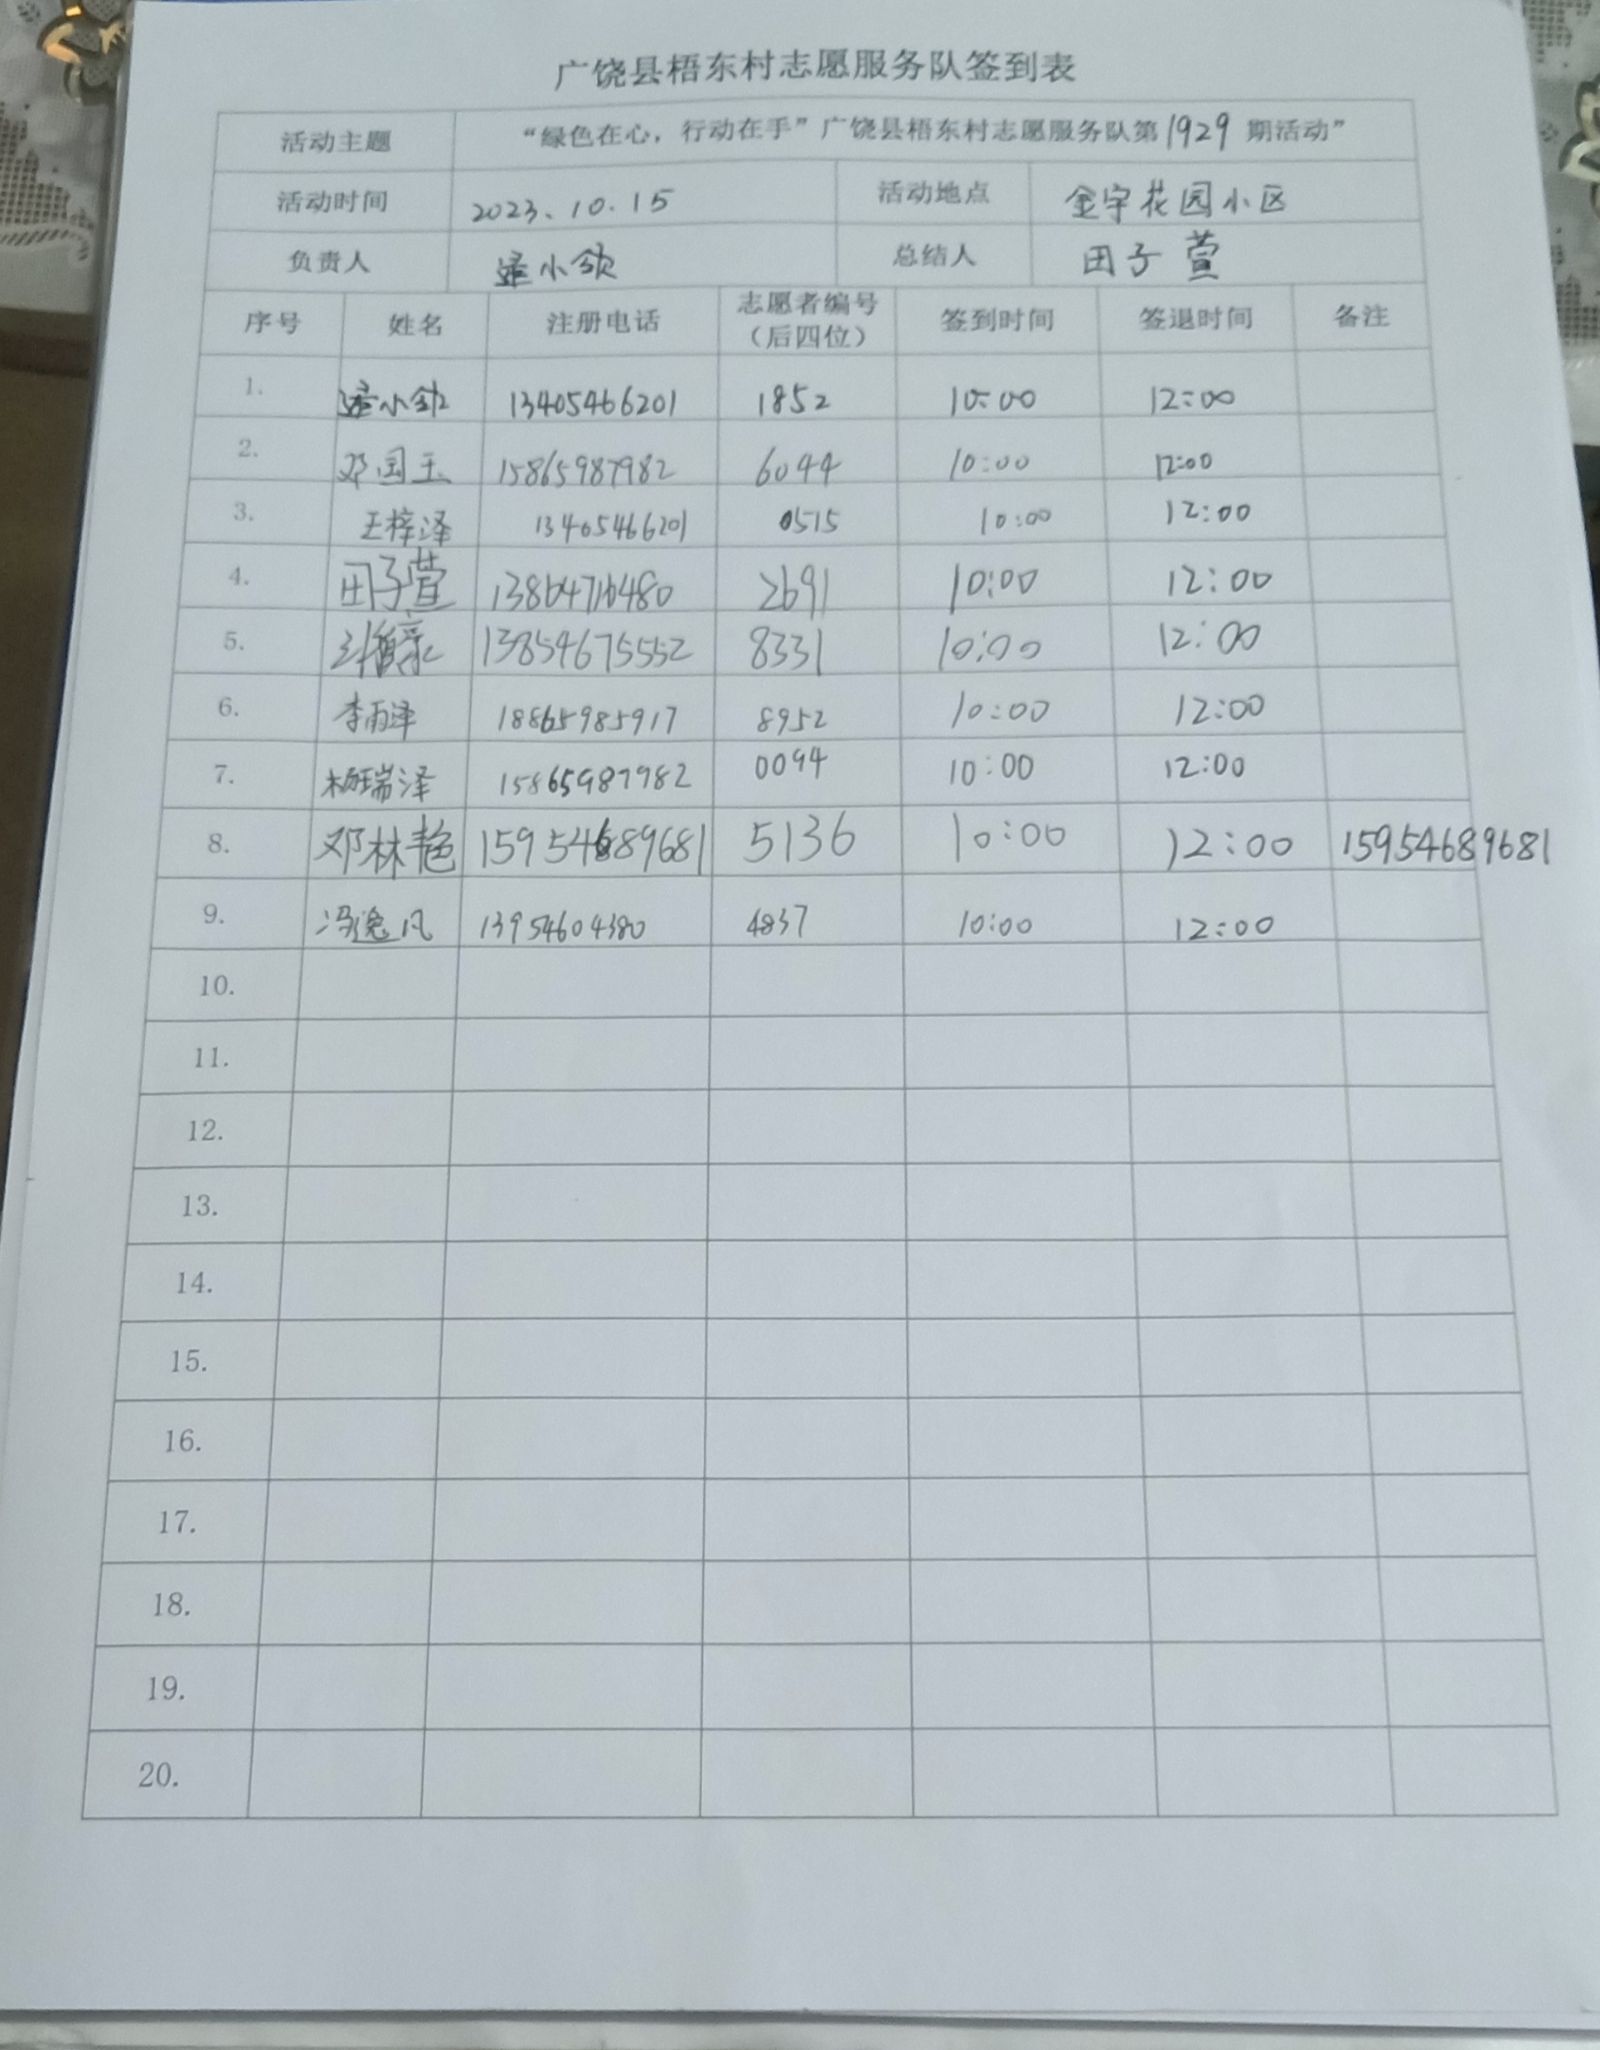 广饶县梧东村志愿服务队签到表
活动主题 “绿色在心，行动在手”广饶县梧东村志愿服务队第1929期活动”
活动时间 2023.10.15 活动地点 金宇花园小区
负责人 小 总结人 田子萱
序号 姓名 注册电话 志愿者编号（后四位） 签到时间 签退时间 备注
1. 小 13405466201 1852 10:00 12:00
2. 邓国玉 15865987982 6044 10:00 12:00
3. 王梓泽 13405466201 0515 10:00 12:00
4. 田子萱 2691 10:00 12:00
5. 13854675552 8331 10:00 12:00
6. 李雨泽 18865985917 8952 10:00 12:00
7. 杨瑞泽 15865987982 0094 10:00 12:00
8. 邓林艳 15954689681 5136 10:00 12:00 15954689681
9. 冯逸凡 13954604380 4837 10:00 12:00
10.
11.
12.
13.
14.
15.
16.
17.
18.
19.
20.